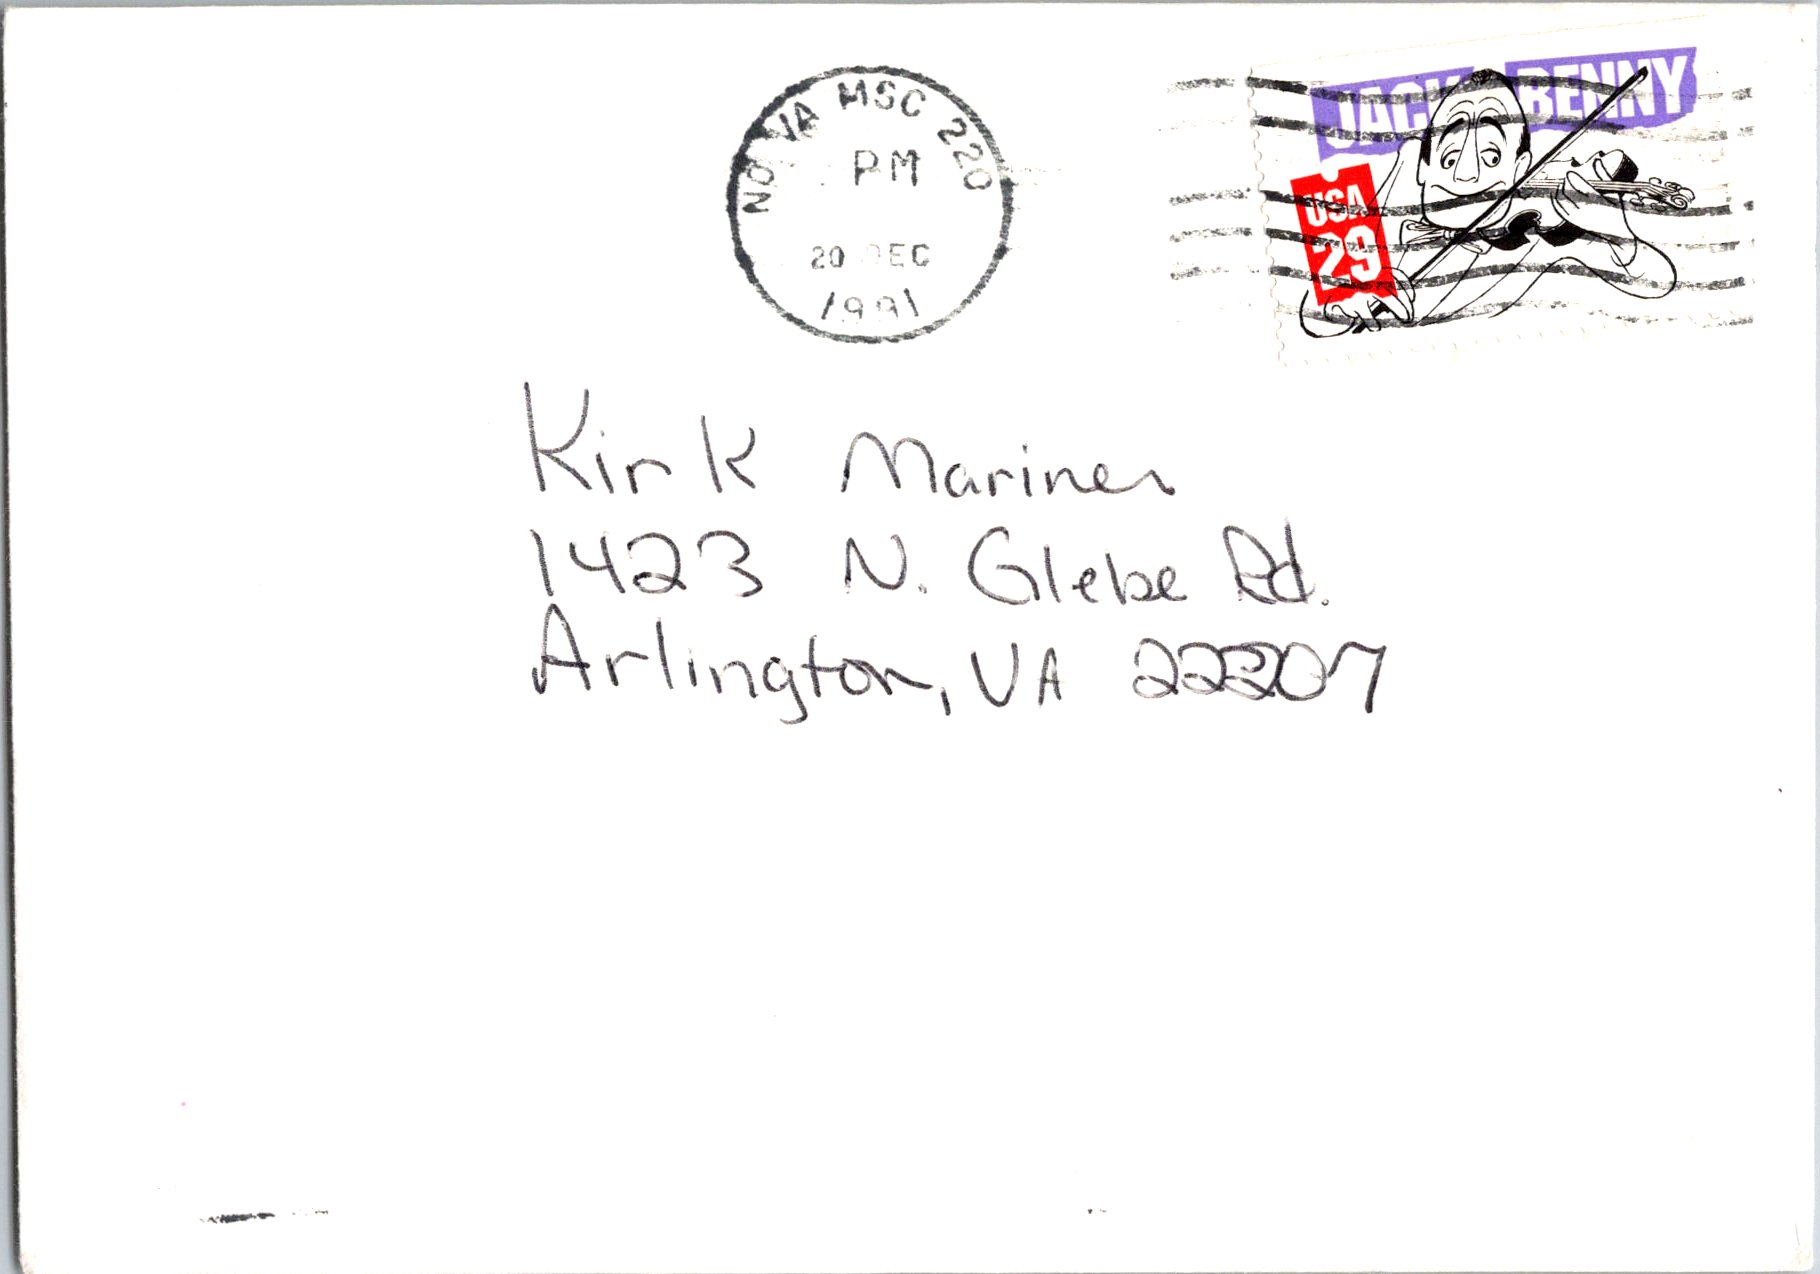 NO VA MSC 220
PM
20 DEC
1991
JACK BENNY
USA
29
Kirk Mariner
1423 N. Glebe Rd.
Arlington, VA 22207